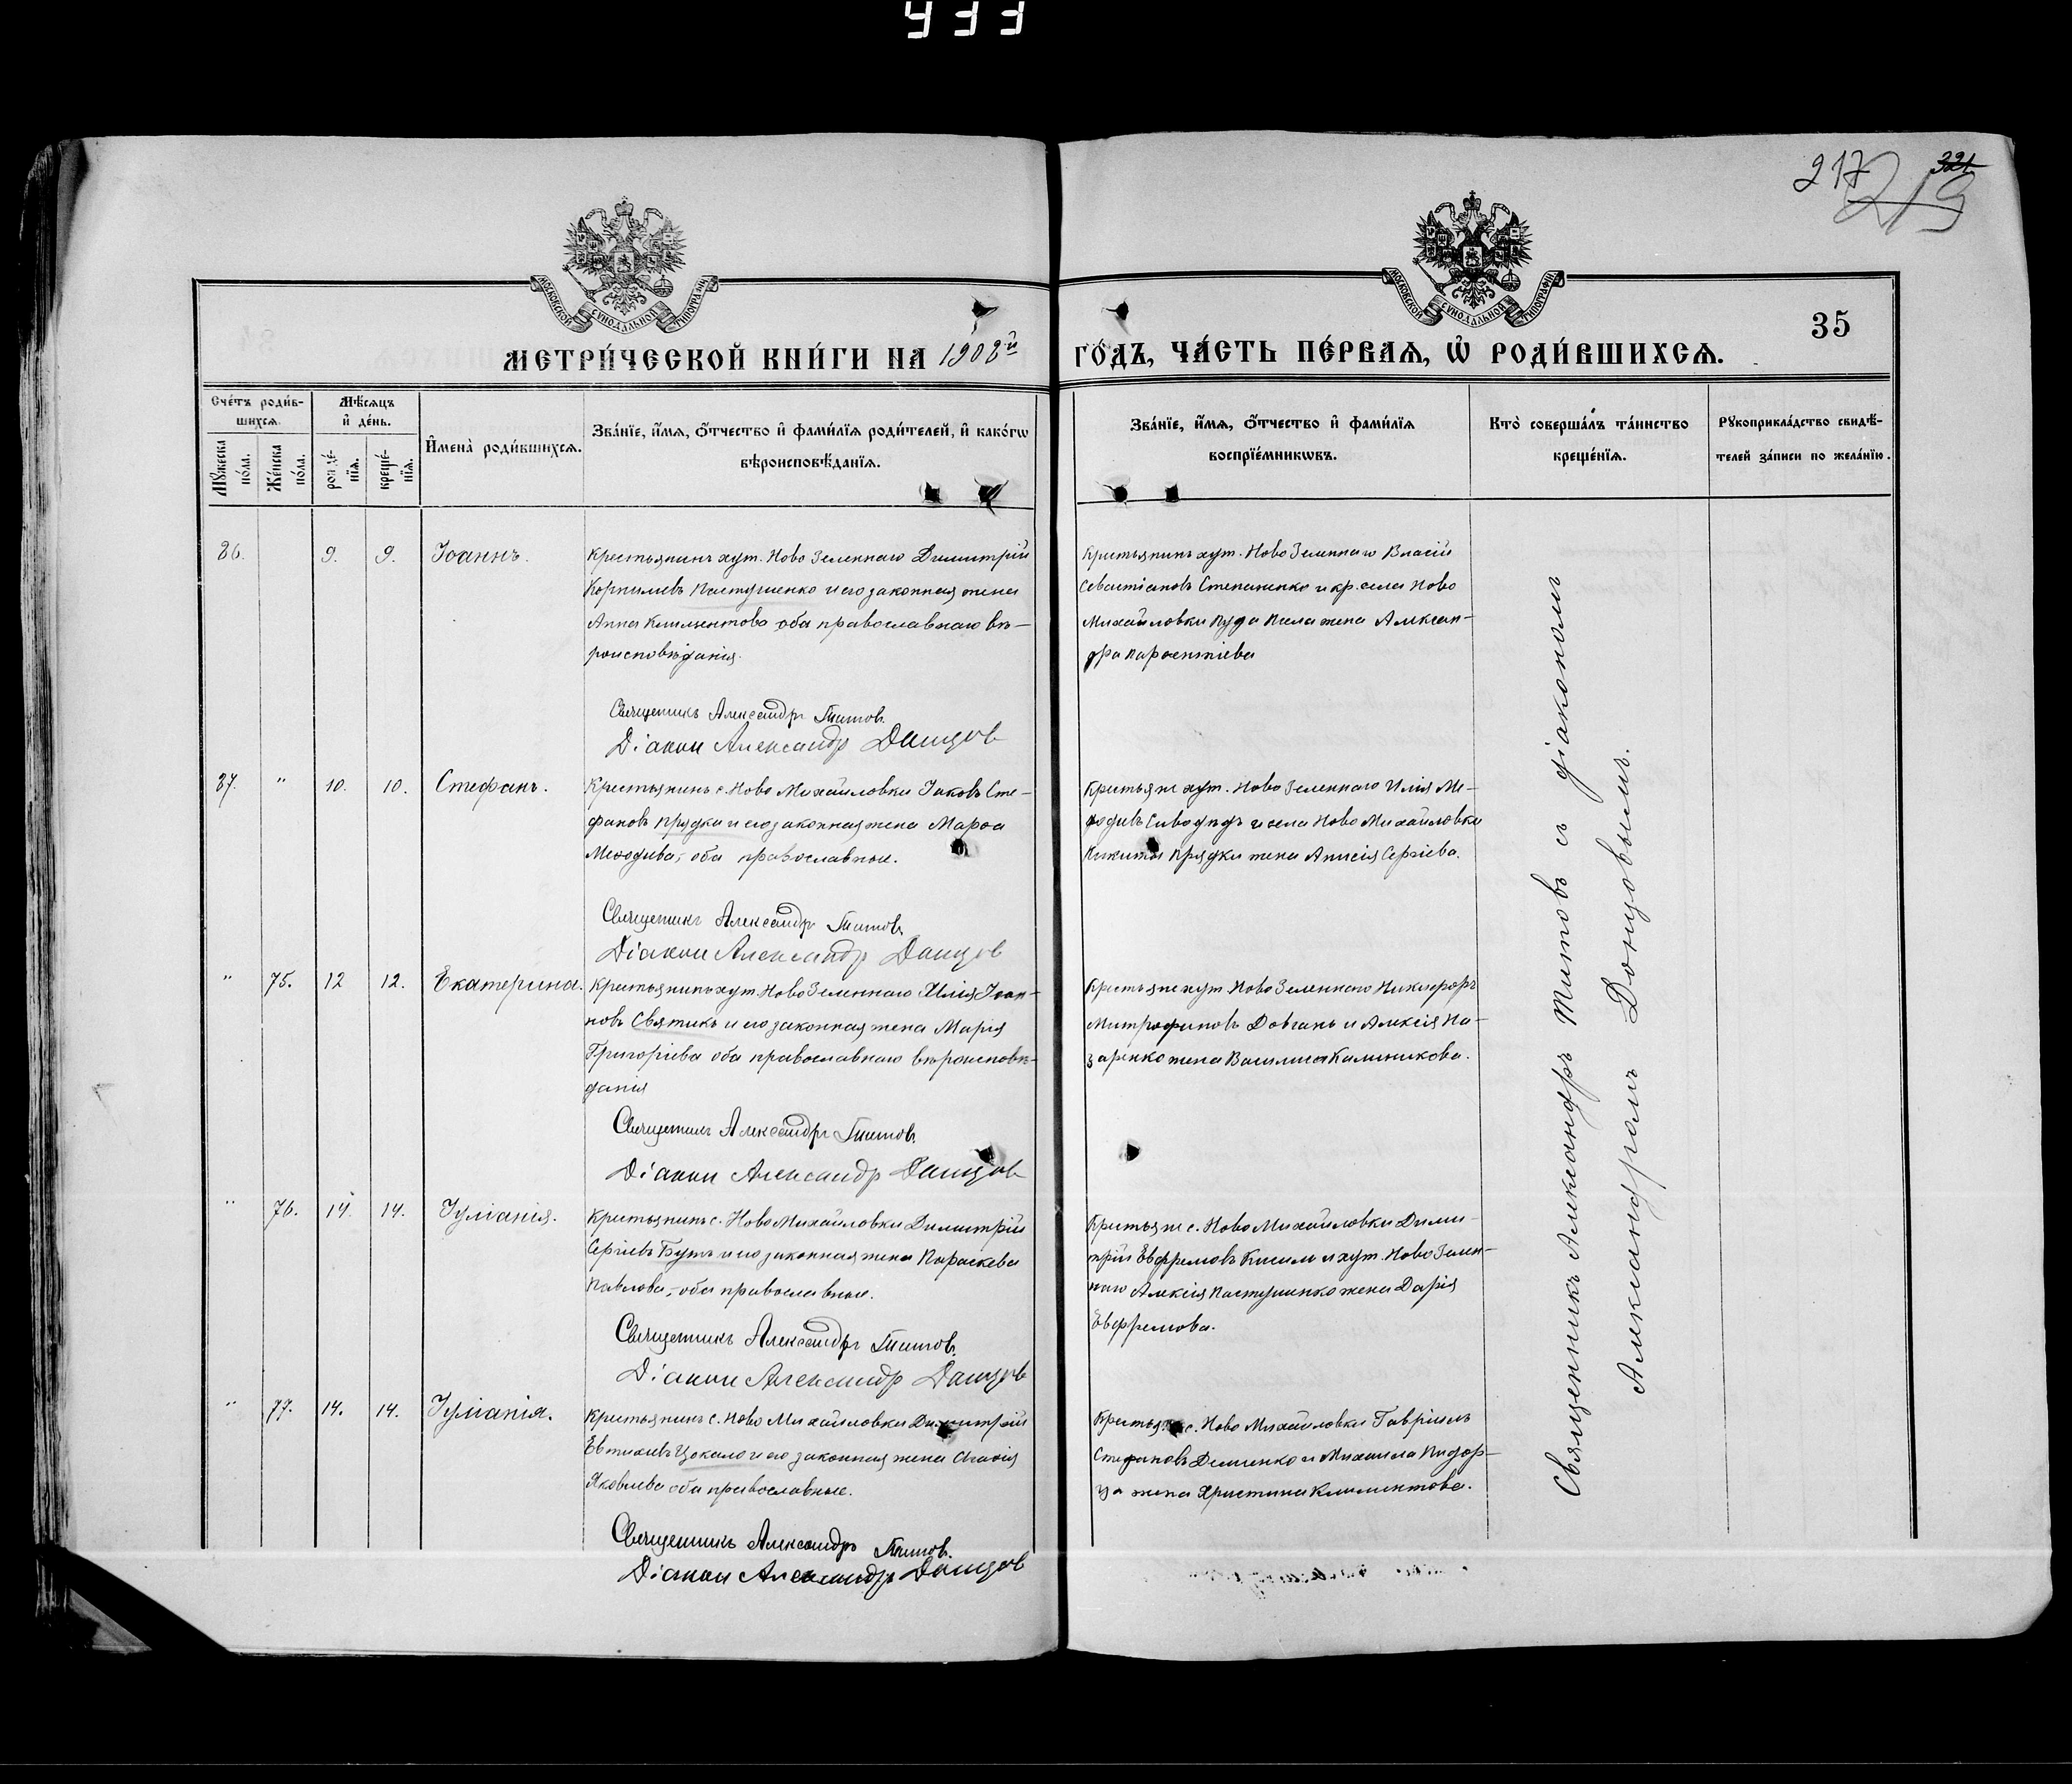 433
217 219 321
МОСКОВСКОЙ СѴНОДАЛЬНОЙ ТИПОГРАФІИ
МОСКОВСКОЙ СѴНОДАЛЬНОЙ ТИПОГРАФІИ
35
МЕТРИ́ЧЕСКОЙ КНИ́ГИ НА 1908й ГО́ДЪ, ЧА́СТЬ ПЕ́РВАѦ, Ѡ҆ РОДИ́ВШИХСѦ.
Сче́тъ роди́в-
шихсѧ.
Мѣ́сѧцъ
и҆ де́нь.
Мꙋ́жеска по́ла.
Же́нска по́ла.
рожде́-нїѧ.
креще́-нїѧ.
И҆мена̀ роди́вшихсѧ.
Зва́нїе, и҆́мѧ, ѻ҆́тчество и҆ фами́лїѧ роди́телей, и҆ како́гѡ
вѣроисповѣ́данїѧ.
Зва́нїе, и҆́мѧ, ѻ҆́тчество и҆ фами́лїѧ
воспрїе́мникѡвъ.
Кто̀ соверша́лъ та́инство
креще́нїѧ.
Рꙋкоприкла́дство свидѣ́-
телей за́писи по жела́нїю.
86. 9. 9. Іоаннъ.
Крестьянинъ хут. Ново Зеленнаго Димитрій
Корниліевъ Пастушенко и его законная жена
Анна Климентова оба православнаго вѣ-
роисповѣданія.
Священникъ Александръ Титов.
Діакон Александр Данцов
Крестьянинъ хут. Ново Зеленнаго Власій
Севастіановъ Степаненко и кр. села Ново
Михайловки жена Алексан-
дра Парѳентіева
87. " 10. 10. Стефанъ.
Крестьянинъ с. Ново Михайловки Іаковъ Сте-
фановъ Прядка и его законная жена Марѳа
Меѳодіева, оба православные.
Священникъ Александръ Титов.
Діакон Александр Данцов
Крестьяне хут. Ново Зеленнаго Илія Ме-
ѳодіевъ Сиводѣдъ и села Ново Михайловки
Никиты Прядки жена Анисія Сергіева.
" 75. 12 12. Екатерина.
Крестьянинъ хут. Ново Зеленнаго Илія Іоан-
новъ Святикъ и его законная жена Марія
Григоріева оба православнаго вѣроисповѣ-
данія
Священникъ Александръ Титов.
Діакон Александр Данцов
Крестьяне хут. Ново Зеленнаго Никифоръ
Митрофановъ Довгань и Алексія На-
заренко жена Василиса Калиникова.
" 76. 14. 14. Іуліанія.
Крестьянинъ с. Ново Михайловки Димитрій
Сергіевъ Бутъ и его законная жена Параскева
Павлова, оба православные.
Священникъ Александръ Титов.
Діакон Александр Данцов
Крестьяне с. Ново Михайловки Дими-
трій Евфремовъ Кисилъ и хут. Ново Зелен-
наго Алексія Пастушенко жена Дарія
Евфремова.
" 77. 14. 14. Іуліанія.
Крестьянинъ с. Ново Михайловки Димитрій
Евтихіевъ Цокало и его законная жена
Яковлева оба православные.
Священникъ Александръ Титов.
Діакон Александр Данцов
Крестьяне с. Ново Михайловки Гавріилъ
Стефановъ Демченко и Михаила
жена Христина Климентова.
Священникъ Александръ Титовъ съ діакономъ
Александромъ Донцовымъ.